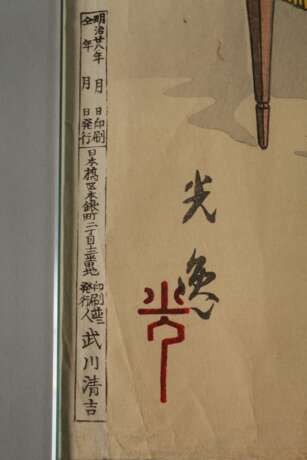 明治廿八年 月 日印刷
仝 年 月 日発行
日本橋区本銀町二丁目十三番地
印刷兼
発行人
武川清吉
光逸
光